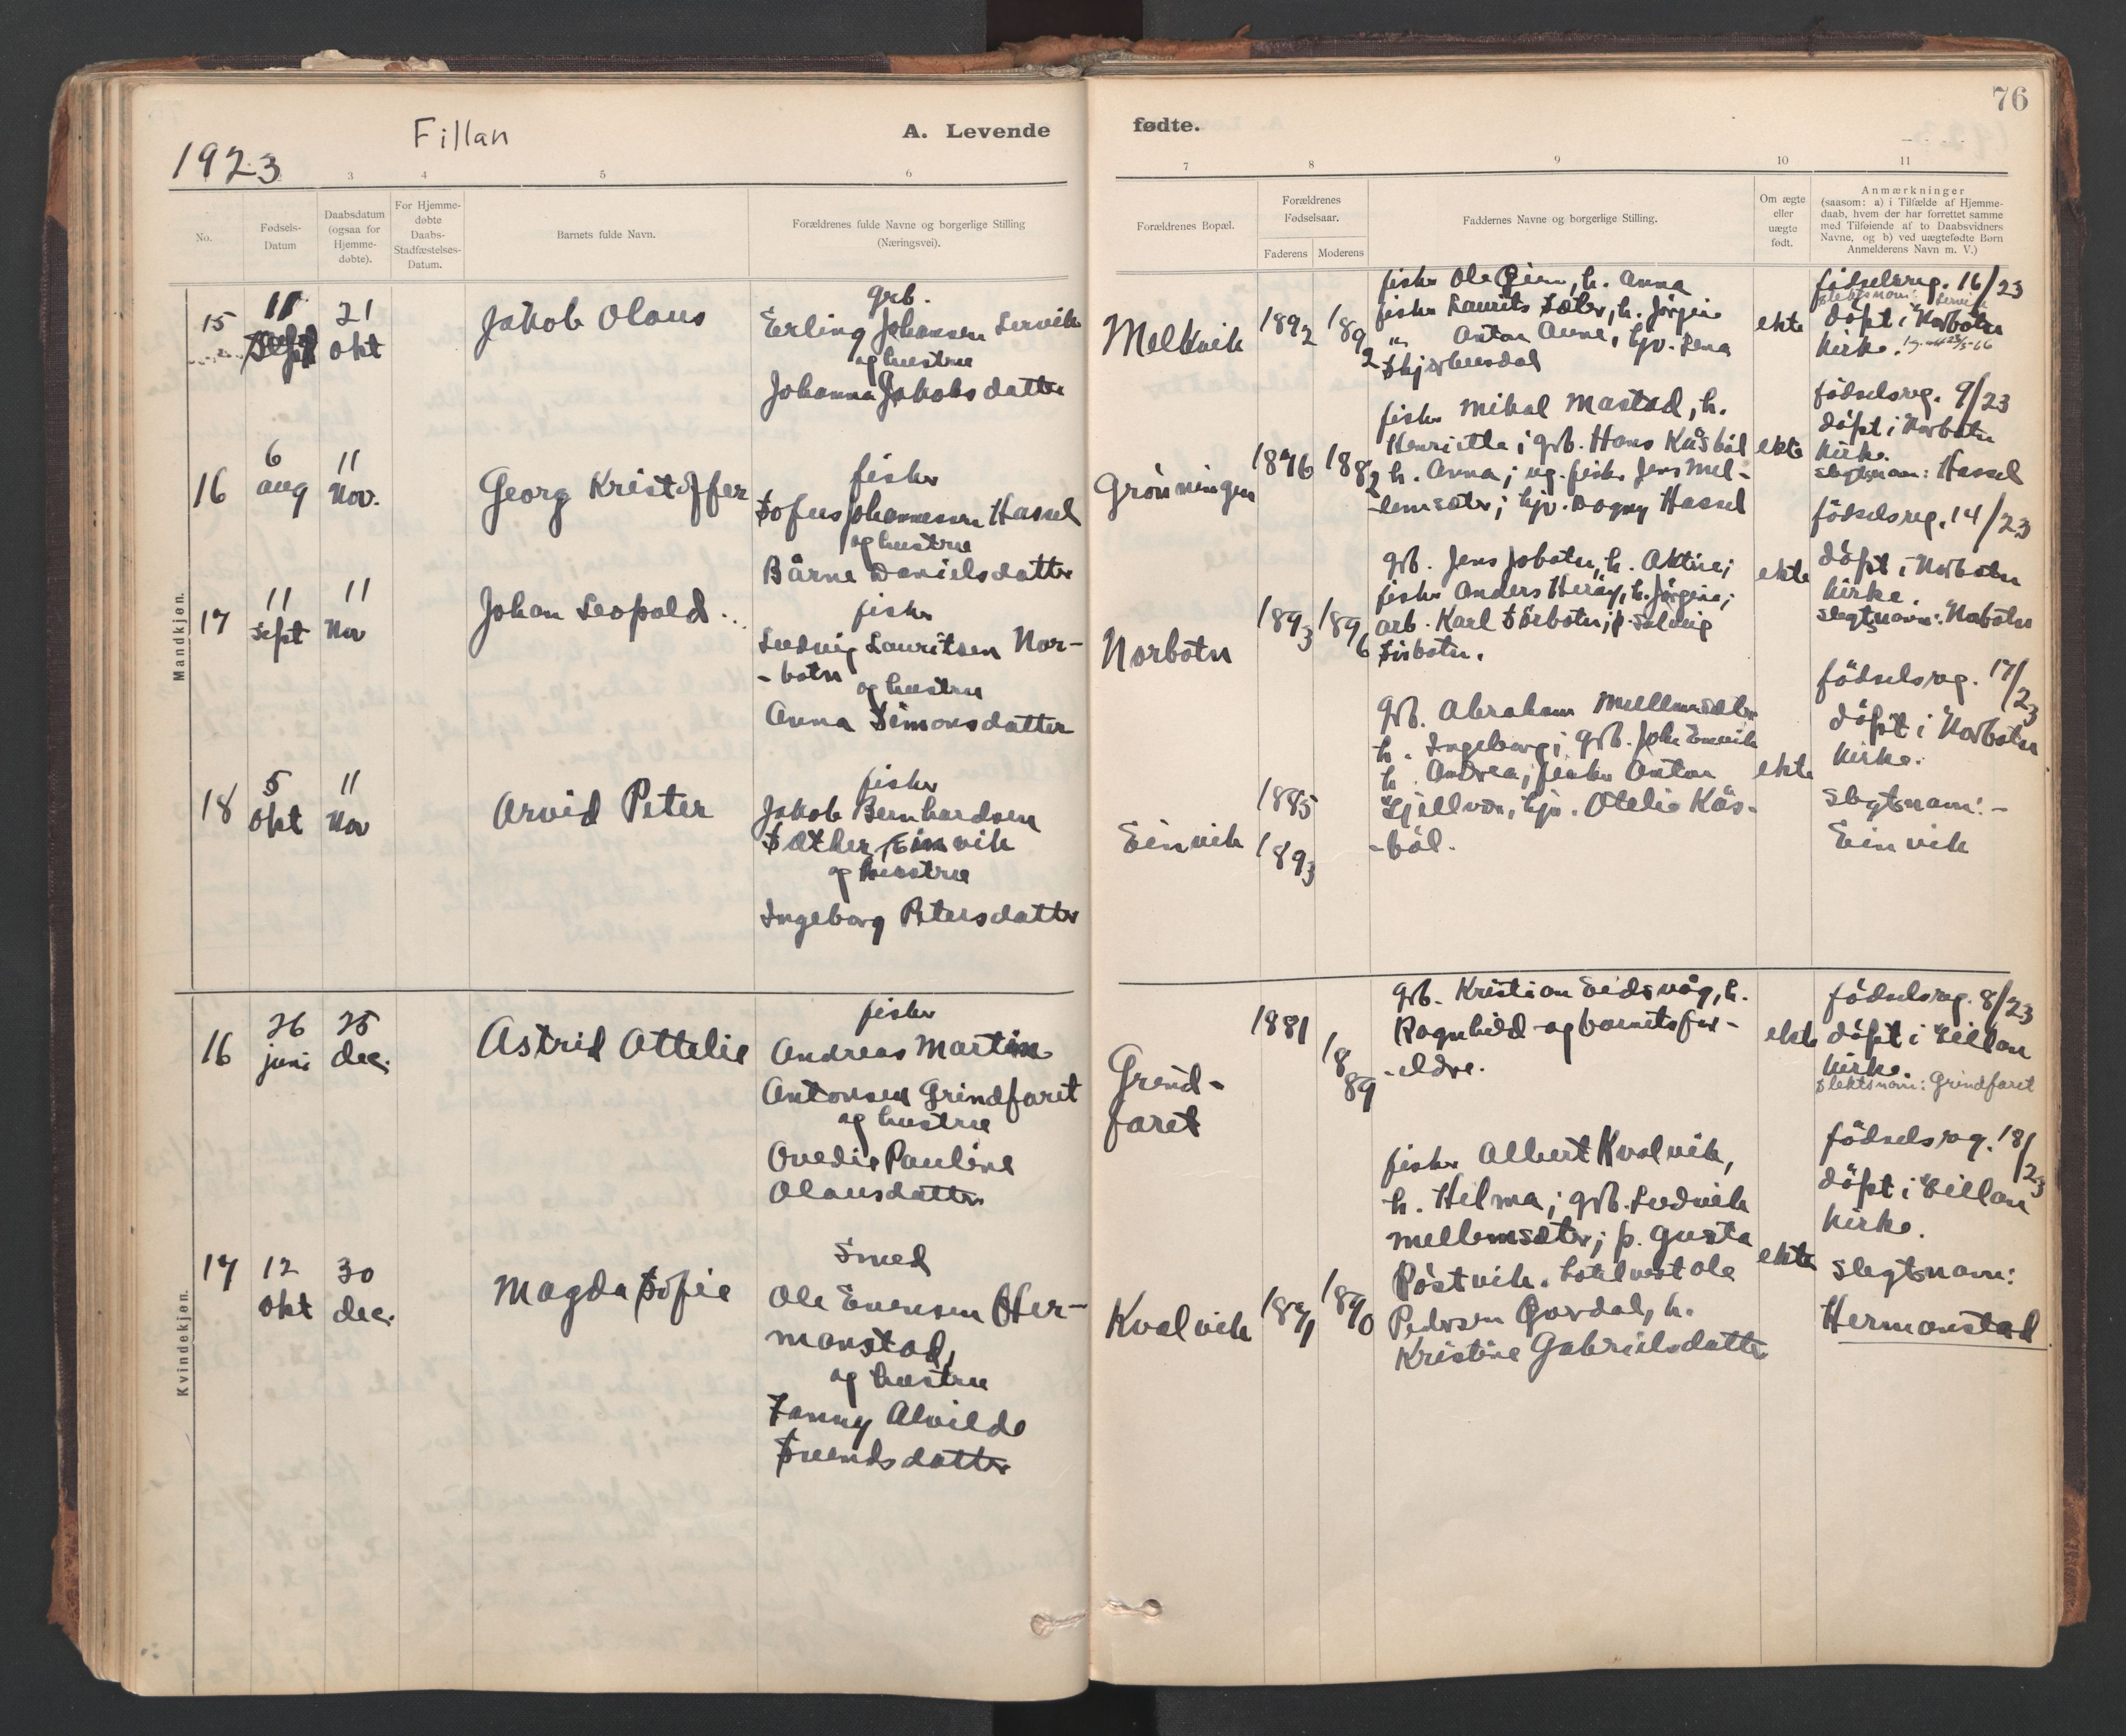 76
Fillan
A. Levende
fødte.
1923
3
4
5
6
7
8
9
10
11
No.
Fødsels-
Datum
Daabsdatum
(ogsaa for
Hjemme-
døbte).
For Hjemme-
døbte
Daabs-
Stadfæstelses-
Datum.
Barnets fulde Navn.
Forældrenes fulde Navne og borgerlige Stilling
(Næringsvei).
Forældrenes Bopæl.
Forældrenes
Fødselsaar.
Faderens
Moderens
Faddernes Navne og borgerlige Stilling.
Om ægte
eller
uægte
født.
Anmærkninger
(saasom: a) i Tilfælde af Hjemme-
daab, hvem der har forrettet samme
med Tilføiende af to Daabsvidners
Navne, og b) ved uægtefødte Børn
Anmelderens Navn m. V.)
Mandkjøn.
15
11
21
okt
Jakob Olaus
grb.
Erling Johansen Servik
og hustru
Johanna Jakobsdatter
Melkvik
1892
1892
fisker Ole Øien, h. Anna
fisker Laurits Sæter, h. Jörgine
" Anton Aune, hjv. Lena
ekte
födselsreg. 16/23
slektsnavn: Servik
döpt i Norbotn
kirke.
16
6
aug
11
Nov.
Georg Kristoffer
fisker
Sofus Johannessen Hassel
og hustru
Bårne Danielsdatter
Grönningen
1876
1882
fisker Mikal Mastad, h.
Henriette; grb. Hans Kåsböl
h. Anna; ug. fisker Jens Mel-
-lemsæter; hjv. Dagny Hassel
ekte
födselsreg. 9/23
döpt i Norbotn
kirke.
slegtsnavn: Hassel
17
11
sept
11
Nov
Johan Leopold
fisker
Ludvig Lauritsen Nor-
-botn
og hustru
Anna Simonsdatter
Norbotn
1893
1896
grb. Jens Jobotn, h. Aktine;
fisker Anders Heröy, h. Jörgine;
arb. Karl Sörbotn; p. Solveig
Sörbotn.
ekte
födselsreg. 14/23
döpt i Norbotn
kirke.
slegtsnavn: Nobotn
18
5
okt
11
Nov
Arvid Peter
fisker
Jakob Bernhardsen
Sæther, Einvik
og hustru
Ingeborg Petersdatter
Einvik
1885
1893
grb. Abraham Mellemsæter
h. Ingeborg; grb. Johs Einvik
h. Andrea; fisker Anton
Fjellvær, hjv. Otelie Kås-
-böl.
ekte
födselsreg. 17/23
döpt i Norbotn
kirke.
slegtsnavn: -
Einvik
Kvindekjøn.
16
26
juni
25
dec.
Astrid Ottelie
fisker
Andreas Martin
Antonsen Grindfaret
og hustru
Ovedie Pauline
Olausdatter
Grind-
faret
1881
1889
grb. Kristian Eidsvåg, h.
Ragnhild - og barnets for-
-eldre.
ekte
födselsreg. 8/23
döpt i Fillan
kirke.
slektsnavn: Grindfaret
17
12
okt
30
dec.
Magda Sofie
Smed
Ole Evensen Her-
manstad,
og hustru
Fanny Alvilde
Svendsdatter
Kvalvik
1871
1890
fisker Albert Kvalvik,
h. Hilma; grb. Ludvik
Mellemsæter; p. Gusta
Röstvik. hotelvert Ole
Pedersen Gjordal, h.
Kristine Gabrielsdatter
ekte
födselsreg. 18/23
döpt i Fillan
kirke.
slegtsnavn:
Hermanstad